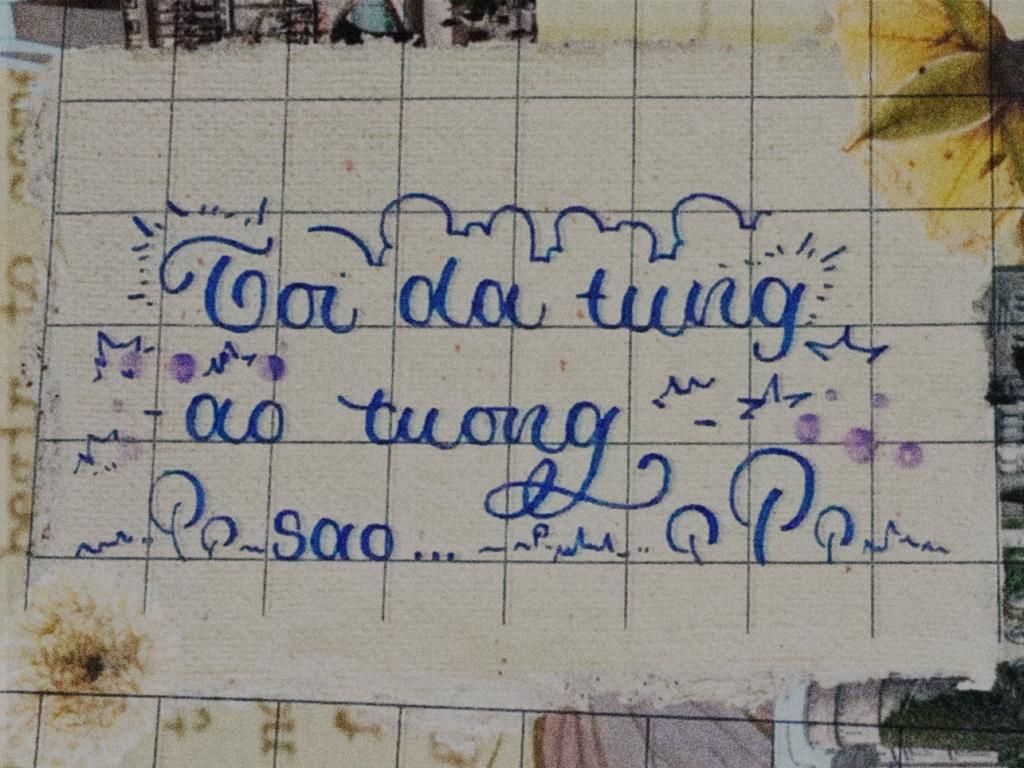 Toi da tung
ao tuong
sao...